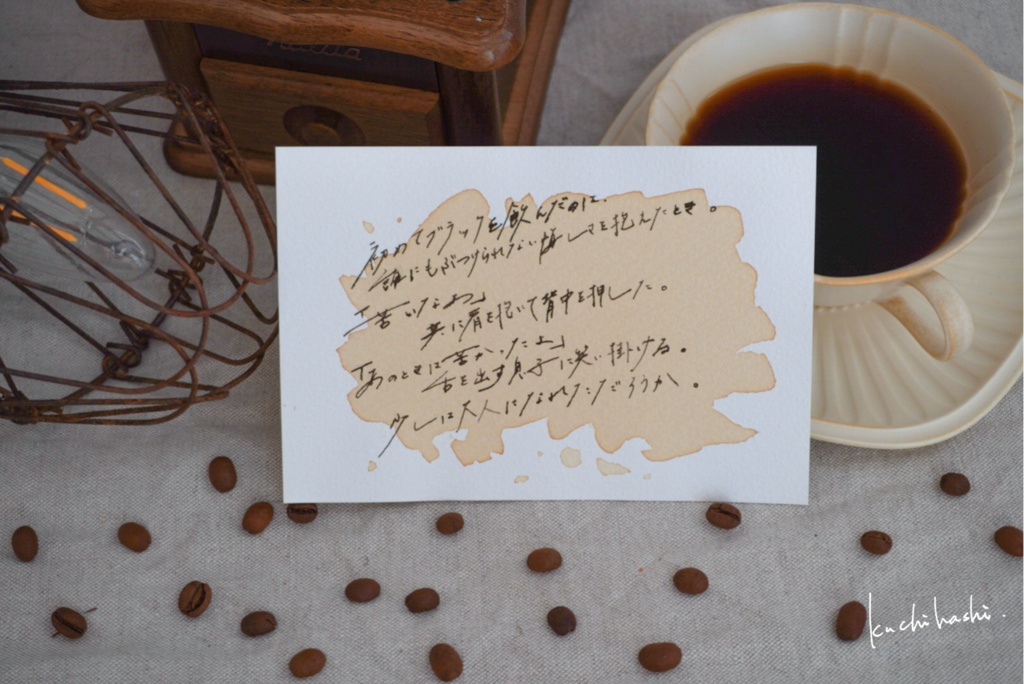 初めてブラックを飲んだのは、
誰にもぶつけられない悔しさを抱えたとき。
「苦いなぁ」
共に肩を抱いて背中を押した。
「あのときは苦かったよ」
舌を出す息子に笑い掛ける。
少しは大人になれただろうか。
kuchihashi.